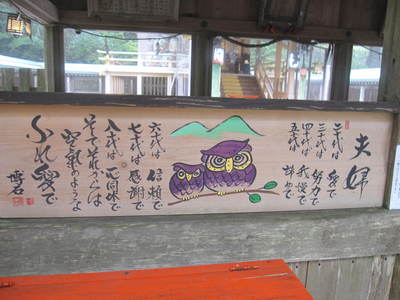 夫婦
二十代は 愛で
三十代は 努力で
四十代は 我慢で
五十代は 諦めで
六十代は 信頼で
七十代は 感謝で
八十代は 一心同体で
そしてそれからは
空氣のような
ふれ愛で